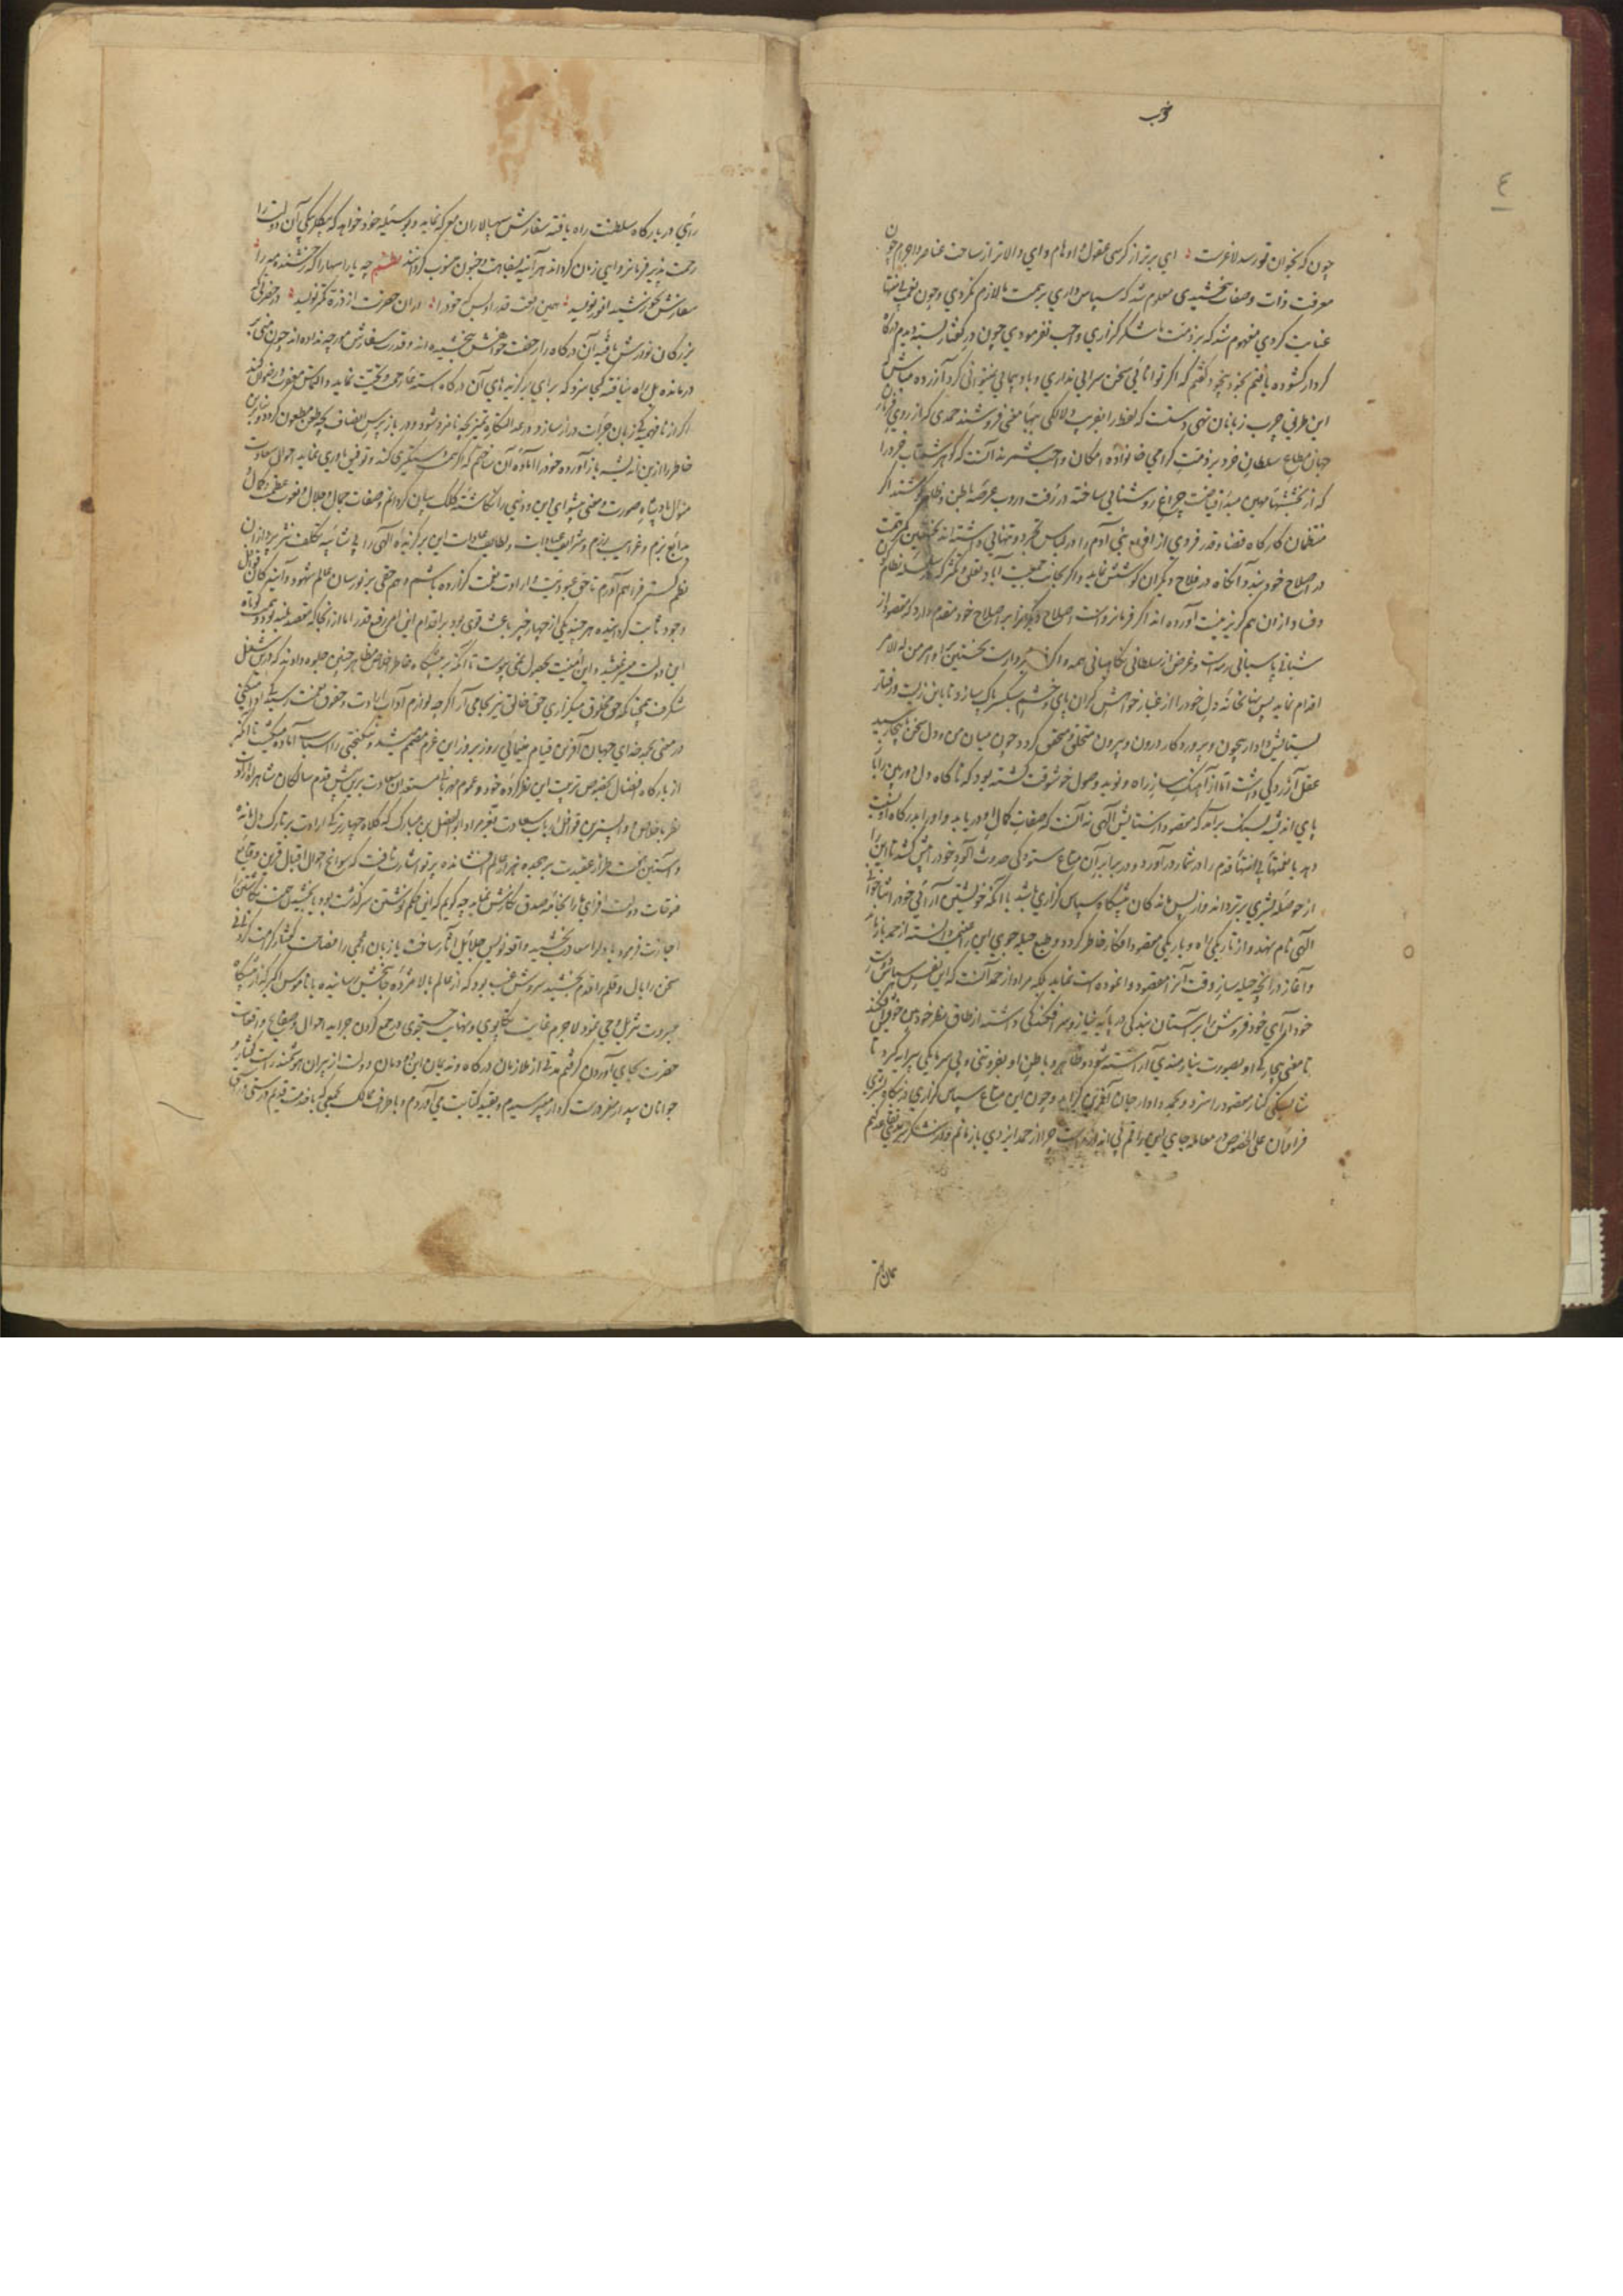 وجب
٤
چون که بخوان تو رسد لاغرست ؛ ای برتر از کرسی عقول و اوهام و ای والاتر از ساحت عناصر و اجرام چون
معرفت ذات و صفات بخشیدی معلوم شد که سپاس داری بر همت ما لازم نکردی و چون نعمت بی انتها
عنایت کردی مفهوم شد که بر ذمت ما شکر گزاری واجب نفرمودی چون در گفتار بسته دیدم درگاه
کردار گشوده یافتم بخود پیچیده گفتم که اگر توانائی سخن سرایی نداری و باد پیمایی نمیتوانی کرد آزرده مباش
این طرفی چرب زبانان تهی دست که لفظ را بفریب دلالگی ببهای معنی فروشند حمدی که از روی فرمان
جهان مطاع سلطان خرد بر ذمت گرامی خانواده امکان واجب شمرند آنست که گوهر شبتاب خرد را
که از بخششهای مهین مبدأ فیاضست چراغ روشنایی ساخته در رفت و روب عرصه باطن و ظاهر کوشند اگر
منتظمان کارگاه قضا و قدر فردی از افراد بنی آدم را در لباس تجرد و تنهایی داشته اند نخستین همت
در اصلاح خود بندد و آنگاه در فلاح دیگران کوشش نماید و اگر بجانب جمعیت آباد تعلق و تکثر که سلسله نظام
وفساد از ان هم گریز نیست آورده اند اگر فرمانرواست اصلاح دیگران را بر اصلاح خود مقدم دارد که مقصود از
شبانی پاسبانی رمه است و غرض از سلطانی نگاهبانی همه و اگر فرمانبردارست نخستین در اوامر من له الامر
اقدام نماید پس نهانخانه دل خود را از غبار خواهش گران پای و خشم سبکسر پاک سازد تا باین زیست و رفتار
بستایش دادار بیچون و پروردگار درون و بیرون متخلق و متحقق گردد چون میان من و دل سخن بانیجا رسید
عقل آزرده گی داشت اما از آهنگ ساز راه و نوید وصول خوشوقت گشته بود که ناگاه دل دوربین را
پای اندیشه بسنگ برآمد که مقصود از ستایش الهی نه آنست که صفات کمال او دریابد و او را بدرگاه او نسبت
دهد یا نعمتهای بی انتهای قدم را در شمار درآورد و در برابر آن متاع ستودگی حدوث آلود خود را پیش کشد تا این را
از حوصله بشری برتر داند و از پس ماندگان پیشگاه سپاس گزاری باشد یا آنکه خویشتن آرائی خود را ثناخوانی
الهی نام نهد و از تاریکی راه و باریکی مقصود افکار خاطر گردد و طبع حیله جوی این را غنیمت دانسته از حمد باز ماند
و آغاز در انچه حیله ساز وقت آنرا مقصود وانموده است نماید بلکه مراد از حمد آنست که این نفس سپاس
خود آرای خود فروش را بر آستان بندگی در پایه نیاز و سر افکندگی داشته از طاق نظر خود بین خود افکند
تا معنی بیچارگی او بصورت نیازمندی آراسته شود و ظاهر و باطن او بفروتنی و بی سرمایگی پیرایه گیرد تا
شایستگی کنار مقصود را سزد و بحمد دادار جان آفرین گراید و چون این متاع سپاس گزاری در بنگاه بشری
فراوان علی الخصوص در معامله جای این راقم بی اندازه است چرا از حمد ایزدی باز مانم و در شکر توفیق مقدم
رائی در بارگاه سلطنت راه یافته سفارش سپهسالاران معرکه نماید و بوسیله خود خواهد که بیکی آن دولت را
رحمت پذیر فرمانروای زمان گرداند هر آئینه بسفاهت و جنون منسوب گردانند نظم چه یارا سها را که رخشنده مهر را
سفارش بخورشید انور نویسد ؛ همین رفعت قدر او بس که خود را ؛ در ان حضرت از ذره کمتر نویسد ؛ در حضرتی که
بزرگان نورش یافته آن درگاه را رخصت خواهش نبخشیده اند و قدرت سفارش مورچه نداده اند چون منی
درمانده بل راه نیافته کجا سزد که برای برگزیده های آن درگاه استدعا رحمت و تحیت نماید و التماس مغفرت و رضوان کند
اگر از نافهمیدگی زبان جرأت دراز سازد در عدالتگاه تمیز بچه نامزد شود و در باز پرس انصاف بچه طعن مطعون گردد بنابرین
خاطر را ازین اندیشه باز آورده خود را آماده آن ساختم که اگر همت دستگیری کند و توفیق یاوری نماید احوال سعادت
منوال پادشاه صورت و معنی پیشوای دین و دنیی را نگاشته کلک بیان گردانم و صفات جمال و جلال و نعوت عظمت و کمال
بدائع بزم و غرایب رزم و شرائف عبادات و لطایف عادات این برگزیده الهی را بی شائبه تکلف نثر پردازان
نظم گستر فراهم آورم تا حق عبودیت و ارادت نعمت گزارده باشم و هم حقی بر نورسان عالم شهود و آیندگان قوافل
وجود ثابت گردانیده هر چند یکی از چهار خبر باعث قوی بود بر اقدام این امر رفیع قدر اما از انجا که مقصد بلند بود و همت کوتاه
این دولت میسر نمیشد و این امنیت بحصول نمی پیوست تا آنکه بر پیشگاه خاطر اخلاص مظاهر چنین جلوه دادند که در ین شغل
شگرف بمنهاجی که حق مخلوق میگزاری حق خالق نیز بجا می آر اگر چه لوازم آداب ارادت و حقوق نعمت رسیده ادا میکنی
در معنی حمد خدای جهان آفرین قیام مینمائی روز بروز این عزم مصمم میشد و نیکبختی را اسباب آماده میگشت تا آنکه
از بارگاه افضال بخصوص تربیت این نظرکرده خود و عموم مهربانی مستعدان سعادت بر پیش پیش قدم سالکان شاهراه ارادت
نظر باخلاص و واپسترین قوافل ارباب سعادت تقریر او ابو الفضل بن مبارک که کلاه چهار ترکی ارادت بر تارک دل نهاده
و آستین نخست طراز عقیدت بر هجده هزار عالم افشانده پرتو اشارت تافت که سوانح احوال اقبال قرین و وقایع
فتوحات دولت افزای ما را بخامه صدق نگارش نماید چه گویم که این حکم نوشتن سرگذشت بود یا بخشیدن همت نگاشتن را
اجازت فرمود یا دلرا سعادت بخشید واقعه نویس جلائل آثار ساخت یا زبان عجمی را فصاحت گفتار کرامت کرد نی نی
سخن را بال و قلم را قدم بخشید سروش غیب بود که از عالم بالا مژده جانبخش رسانیده یا ناموس اکبر که از پیشگاه
جبروت تنزیل وحی نمود لاجرم غایت تکاپوی و نهایت جستجوی در جمع کردن جراید احوال و وقایع و واقعات
حضرت بجای آوردن گرفتم مدتی از ملازمان درگاه و ندیمان این دودمان دولت از پیران هوشمند راست گفتار و
جوانان بیدار مغز درست کردار میپرسیدم و بقید کتابت می آوردم و باطراف ممالک بجمعی که بافدمت قدیم و درستی